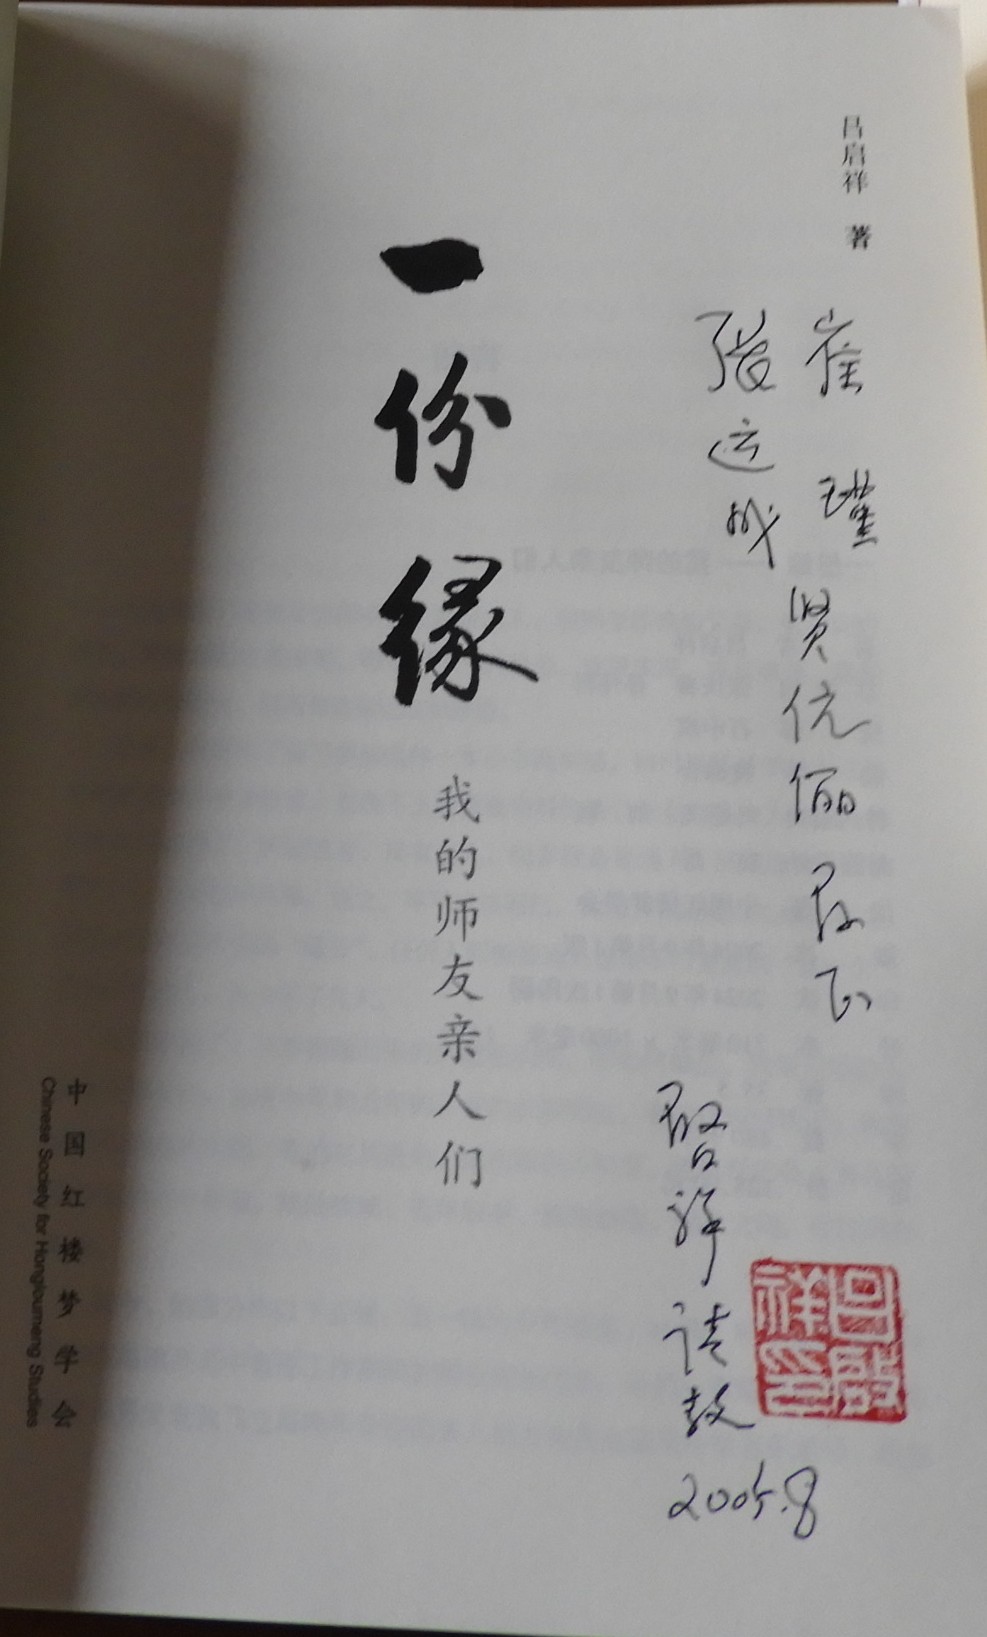 吕启祥 著
崔 瑾
张运
贤伉俪 正
启祥 请教
吕启祥印
一份缘
我的师友亲人们
中国红楼梦学会
Chinese Society for Hongloumeng Studies